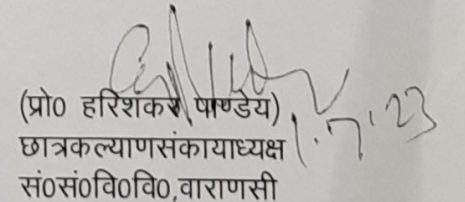 (प्रो० हरिशंकर पाण्डेय)
छात्रकल्याणसंकायाध्यक्ष 1.7.'23
सं०सं०वि०वि०,वाराणसी